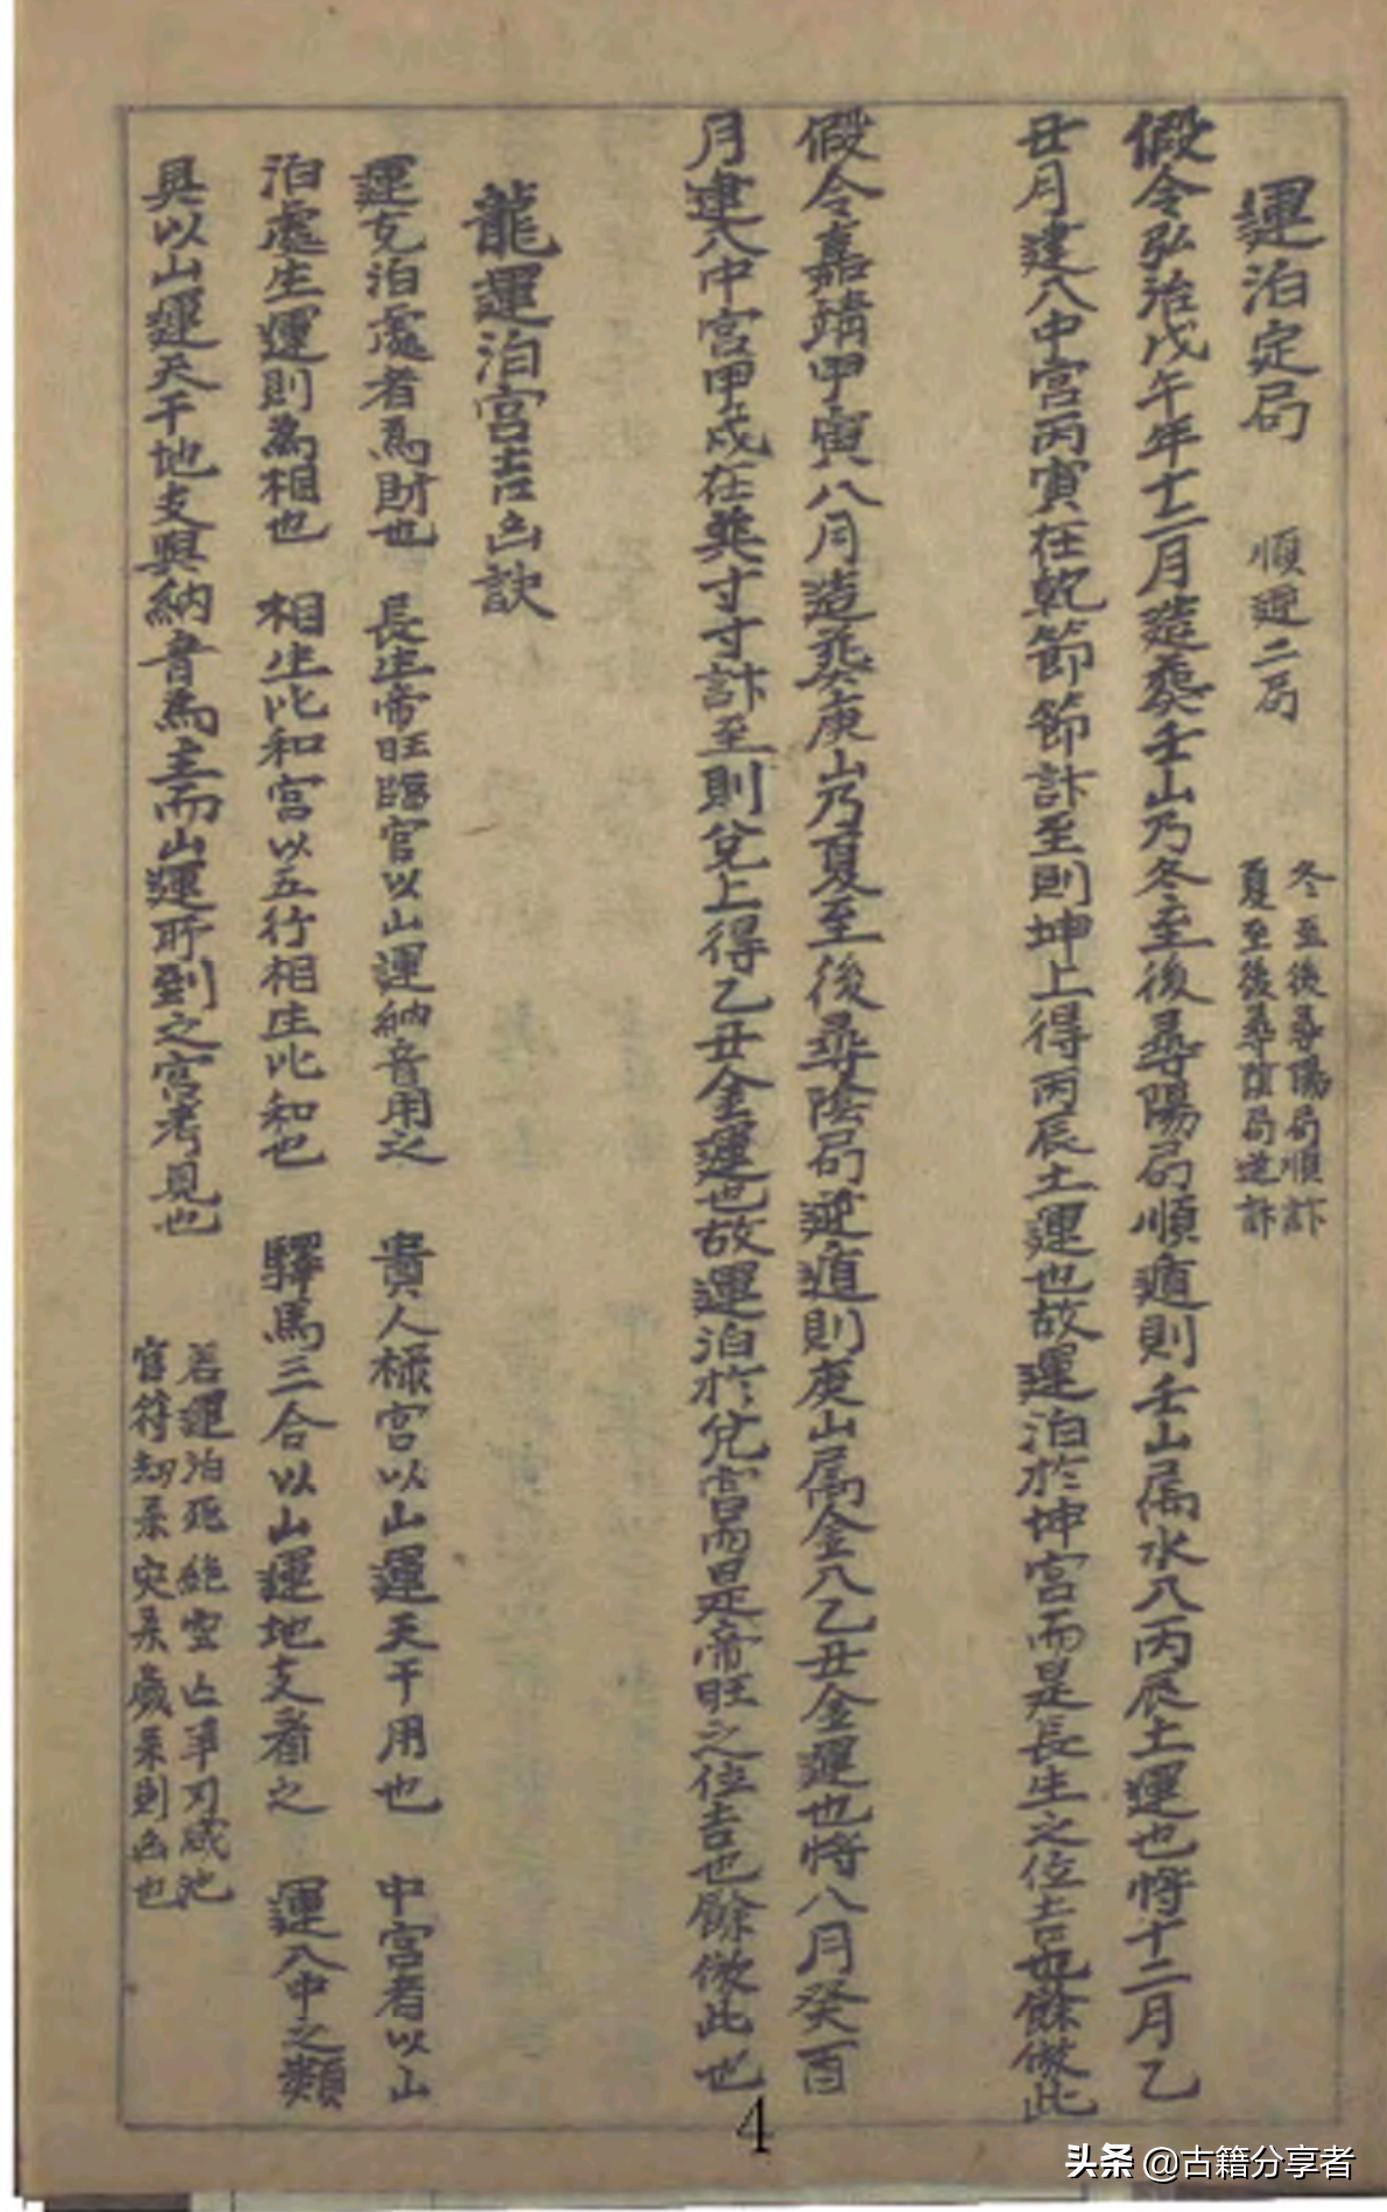 運泊定局 順逆二局 冬至後尋陽局順計
夏至後尋陰局逆計
假令弘治戊午年十二月造葬壬山乃冬至後尋陽局順遁則壬山属水八丙辰土運也將十二月乙
丑月建八中宮丙寅在乾節節計至則坤上得丙辰土運也故運泊於坤宮而是長生之位吉也餘倣此
假令嘉靖甲寅八月造葬庚山乃夏至後尋陰局逆遁則庚山属金八乙丑金運也將八月癸酉
月建八中宮甲戌在巽寸寸計至則兌上得乙丑金運也故運泊於兌宮而是帝旺之位吉也餘倣此也
龍運泊宮吉凶訣
運克泊處者為財也 長生帝旺臨官以山運納音用之 貴人祿宮以山運天干用也 中宮者以山
泊處生運則為相也 相生比和宮以五行相生比和也 驛馬三合以山運地支看之 運八中之類
具以山運天干地支與納音為主而山運所到之宮考見也 若運泊死絕空亡羊刃咸池
官符劫杀灾杀歲杀則凶也
4
头条 @古籍分享者